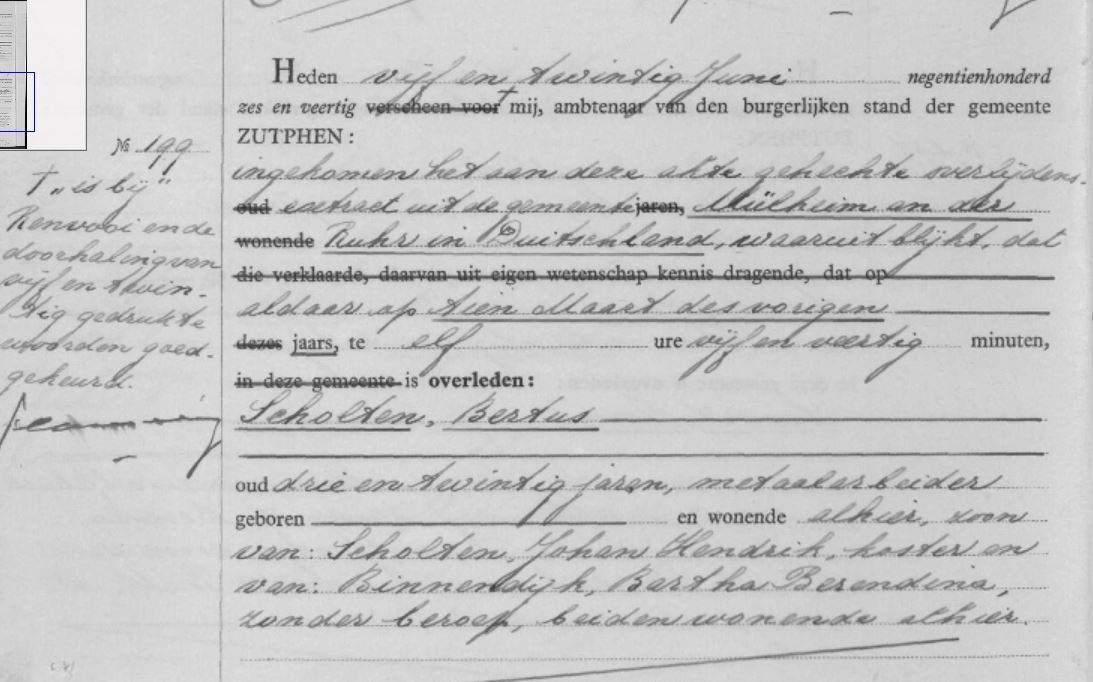 Heden vijf en twintig Juni negentienhonderd
zes en veertig verscheen voor † mij, ambtenaar van den burgerlijken stand der gemeente
ZUTPHEN:
ingekomen het aan deze akte gehechte overlijdens-
oud extract uit de gemeente jaren, Mülheim an der
wonende Ruhr in Duitschland, waaruit blijkt, dat
die verklaarde, daarvan uit eigen wetenschap kennis dragende, dat op
aldaar op tien Maart des vorigen
dezes jaars, te elf ure vijf en veertig minuten,
in deze gemeente is overleden:
Scholten, Bertus
oud drie en twintig jaren, metaalarbeider
geboren en wonende alhier, zoon
van: Scholten, Johan Hendrik, koster en
van: Binnendijk, Bartha Berendina,
zonder beroep, beiden wonende alhier.
№ 199
† „is bij"
Renvooi en de
doorhaling van
vijf en twin-
tig gedrukte
woorden goed-
gekeurd.